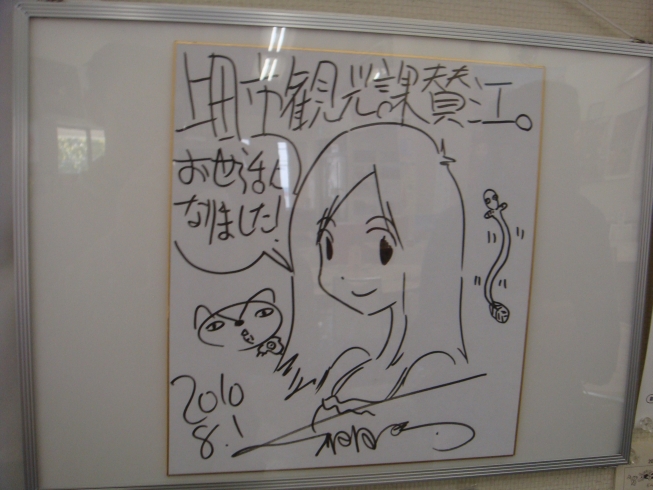 上田市観光課賛江。
お世話に
なりました!
2010
8.1